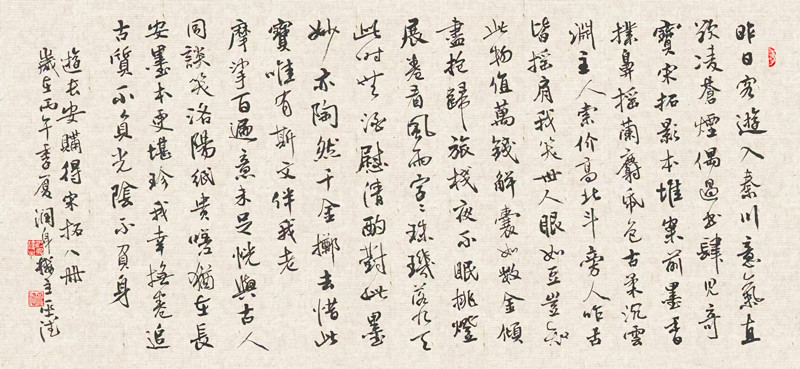 昨日客遊入秦川意氣直
欲凌蒼煙偶過书肆见奇
寶宋拓影本堆案前墨香
撲鼻摇蘭麝紙色古柔沉雲
淵主人索价高北斗旁人咋舌
皆摇肩我笑世人眼如豆豈知
此物值萬錢解囊如数金傾
盡抱歸旅棧夜不眠挑燈
展卷看風雨字々珠璣落九天
此时共酒慰清酌對此墨
妙亦陶然千金擲去惜此
寶唯有斯文伴我老
摩挲百遍意未足恍與古人
同談笑洛陽紙贵嗟猶在長
安墨本更堪珍我幸抱卷追
古質不負光陰不負身
遊长安購得宋拓八册
歲在丙午季夏润身